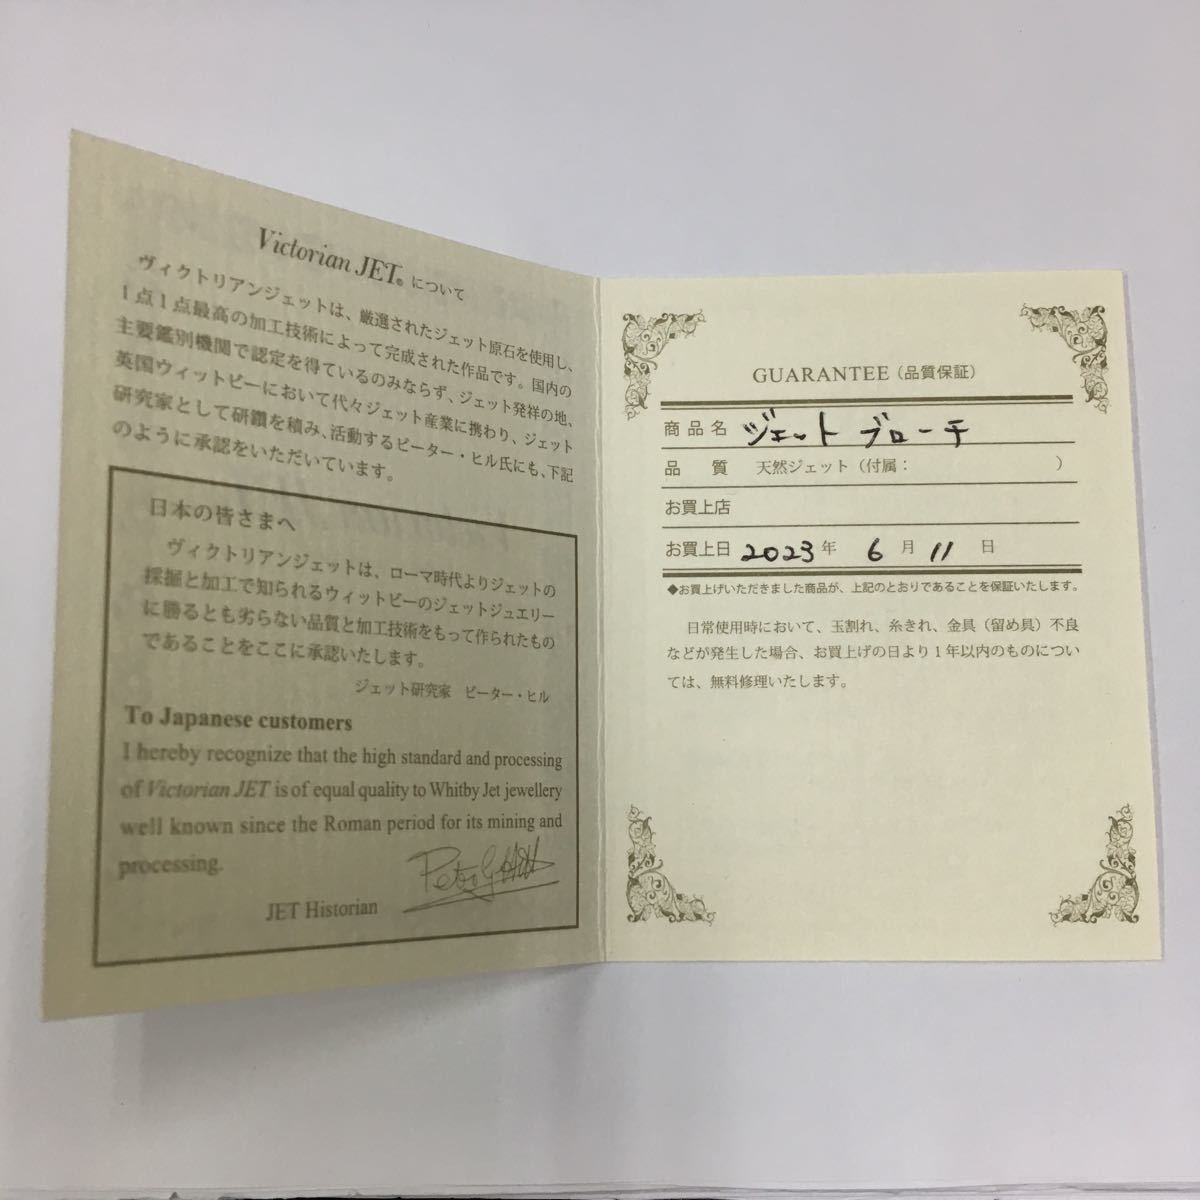 Victorian JET® について
ヴィクトリアンジェットは、厳選されたジェット原石を使用し、
1点1点最高の加工技術によって完成された作品です。国内の
主要鑑別機関で認定を得ているのみならず、ジェット発祥の地、
英国ウィットビーにおいて代々ジェット産業に携わり、ジェット
研究家として研鑽を積み、活動するピーター・ヒル氏にも、下記
のように承認をいただいています。
日本の皆さまへ
ヴィクトリアンジェットは、ローマ時代よりジェットの
採掘と加工で知られるウィットビーのジェットジュエリー
に勝るとも劣らない品質と加工技術をもって作られたもの
であることをここに承認いたします。
ジェット研究家 ピーター・ヒル
To Japanese customers
I hereby recognize that the high standard and processing
of Victorian JET is of equal quality to Whitby Jet jewellery
well known since the Roman period for its mining and
processing.
Peter G Hill
JET Historian
GUARANTEE（品質保証）
商品名 ジェット ブローチ
品質 天然ジェット（付属： ）
お買上店
お買上日 2023 年 6 月 11 日
◆お買上げいただきました商品が、上記のとおりであることを保証いたします。
日常使用時において、玉割れ、糸きれ、金具（留め具）不良
などが発生した場合、お買上げの日より1年以内のものについ
ては、無料修理いたします。